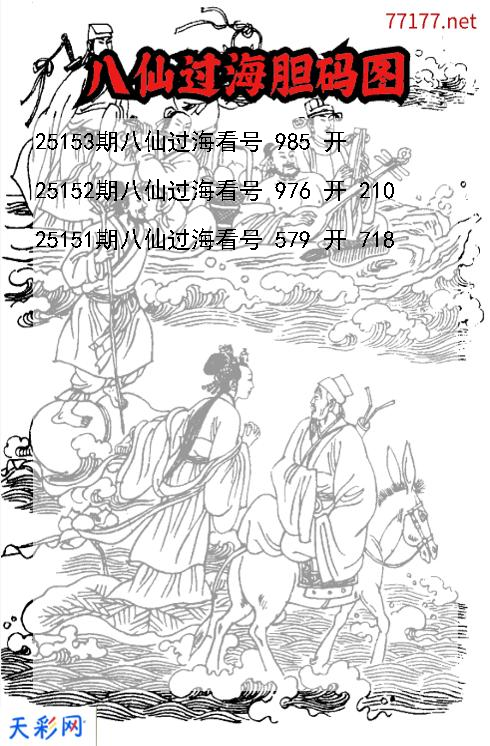 77177.net
八仙过海胆码图
25153期八仙过海看号 985 开
25152期八仙过海看号 976 开 210
25151期八仙过海看号 579 开 718
天彩网